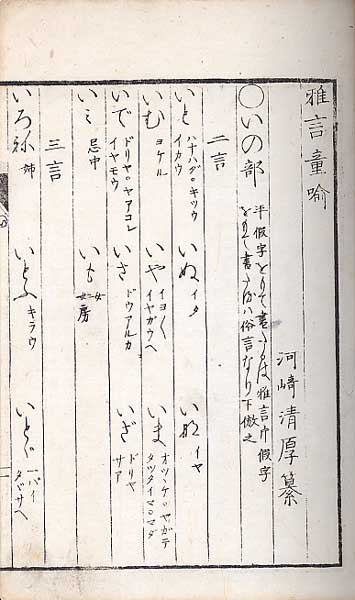 雅言童喩
河﨑清厚纂
○いの部 平假字をもて書たるは雅言片假字
をもて書たるハ俗言なり下倣之
二言
いと ハナハダ○キツウ
イカウ
いぬ イタ
いな イヤ
いむ ヨケル
いや イヨ〱
イヤガウヘ
いま オツツケ○ヤガテ
タツタイマ○マダ
いで ドリヤ○ヤアコレ
イヤモウ
いさ ドウアルカ
いざ ドリヤ
サア
いミ 忌中
いも 女房
三言
いろね 姉
いとふ キラウ
いとゞ 一バイ
タヾサヘ
一